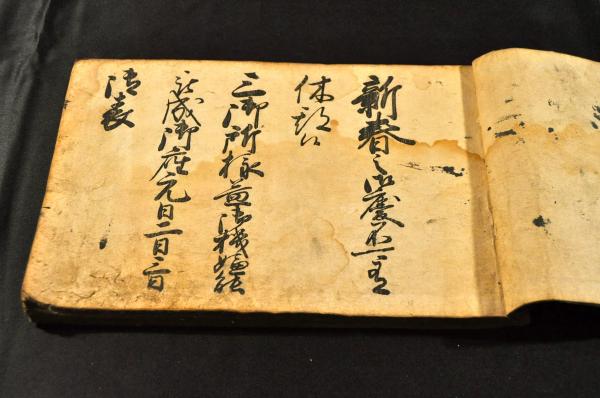 新春之御慶不可有
休期候
三御所様益御機嫌能
被成御座元日二日三日
御表